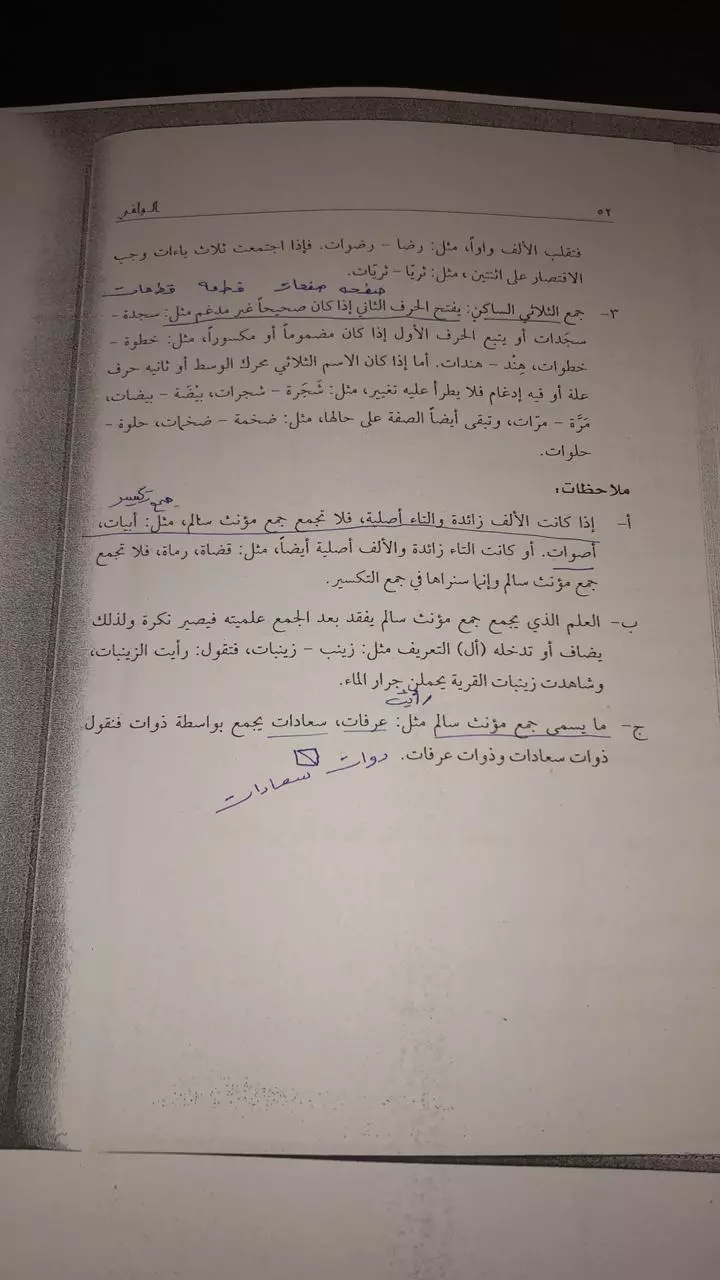 ٥٢ الوافي
فتقلب الألف واواً، مثل: رضا – رضوات. فإذا اجتمعت ثلاث ياءات وجب
الاقتصار على اثنتين، مثل: ثريّا – ثريّات.
صفحه صفحات قطعه قطعات
٣– جمع الثلاثي الساكن: يفتح الحرف الثاني إذا كان صحيحاً غير مدغم مثل: سجدة –
سجَدات أو يتبع الحرف الأول إذا كان مضموماً أو مكسوراً، مثل: خطوة –
خطوات، هِنْد – هندات. أما إذا كان الاسم الثلاثي محرك الوسط أو ثانيه حرف
علة أو فيه إدغام فلا يطرأ عليه تغيير، مثل: شَجَرة – شجرات، بيْضَة – بيضات،
مَرَّة – مرّات، وتبقى أيضاً الصفة على حالها، مثل: ضخمة – ضخمات، حلوة –
حلوات.
ملاحظات:
جمع تكسير
أ– إذا كانت الألف زائدة والتاء أصلية، فلا تجمع جمع مؤنث سالم، مثل: أبيات،
أصوات. أو كانت التاء زائدة والألف أصلية أيضاً، مثل: قضاة، رماة، فلا تجمع
جمع مؤنث سالم وإنما سنراها في جمع التكسير.
ب– العلم الذي يجمع جمع مؤنث سالم يفقد بعد الجمع علميته فيصير نكرة ولذلك
يضاف أو تدخله (أل) التعريف مثل: زينب – زينبات، فتقول: رأيت الزينبات،
وشاهدت زينبات القرية يحملن جرار الماء.
رأيت
ج– ما يسمى جمع مؤنث سالم مثل: عرفات، سعادات يجمع بواسطة ذوات فنقول
ذوات سعادات وذوات عرفات.
ذوات سعادات